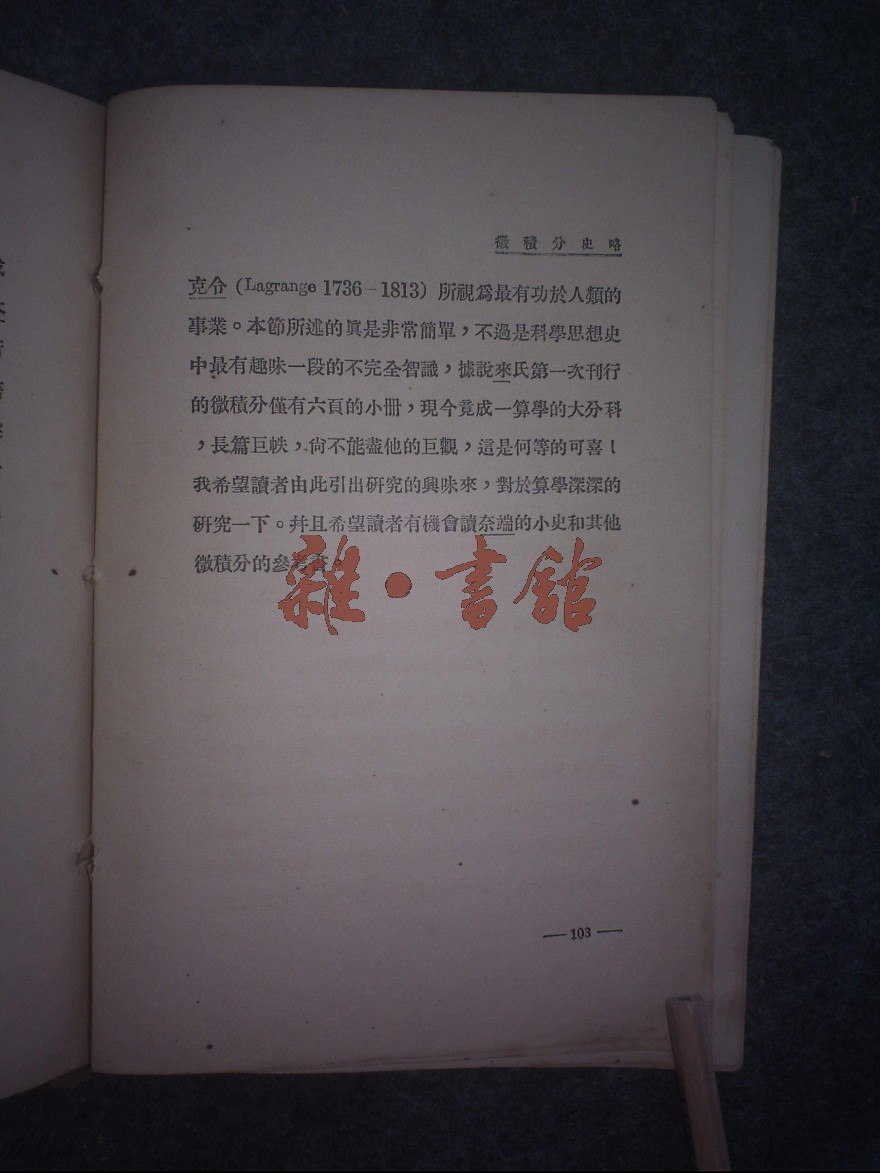 微積分史略
克令 (Lagrange 1736—1813) 所視爲最有功於人類的
事業。本節所述的眞是非常簡單，不過是科學思想史
中最有趣味一段的不完全智識，據說來氏第一次刊行
的微積分僅有六頁的小册，現今竟成一算學的大分科
，長篇巨帙，尙不能盡他的巨觀，這是何等的可喜！
我希望讀者由此引出研究的興味來，對於算學深深的
研究一下。幷且希望讀者有機會讀奈端的小史和其他
微積分的參考書。
雜·書館
—103—